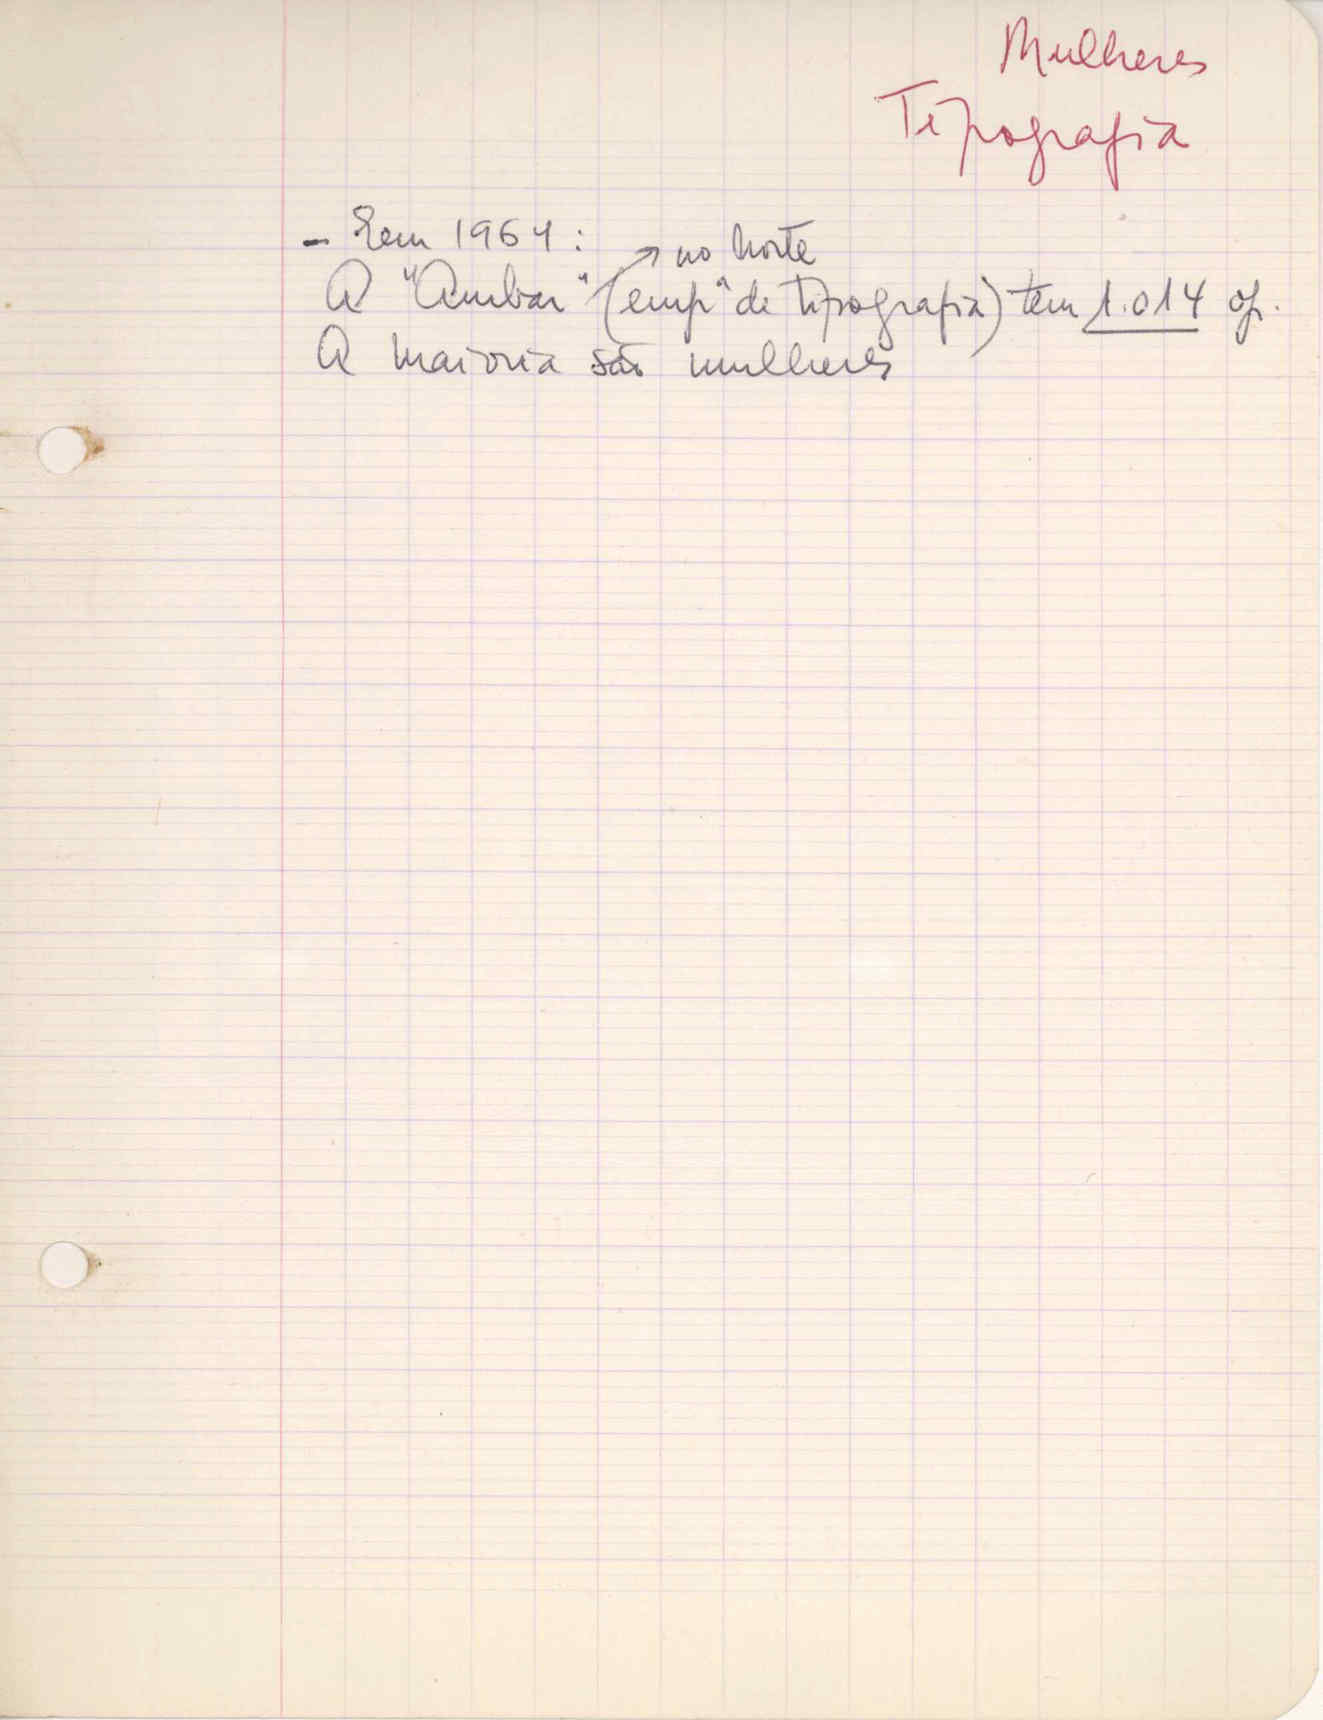 Mulheres
Tipografia
- Em 1964:
→ no Norte
A "Ambar" (empª de tipografia) tem 1.014 op.
A maioria são mulheres